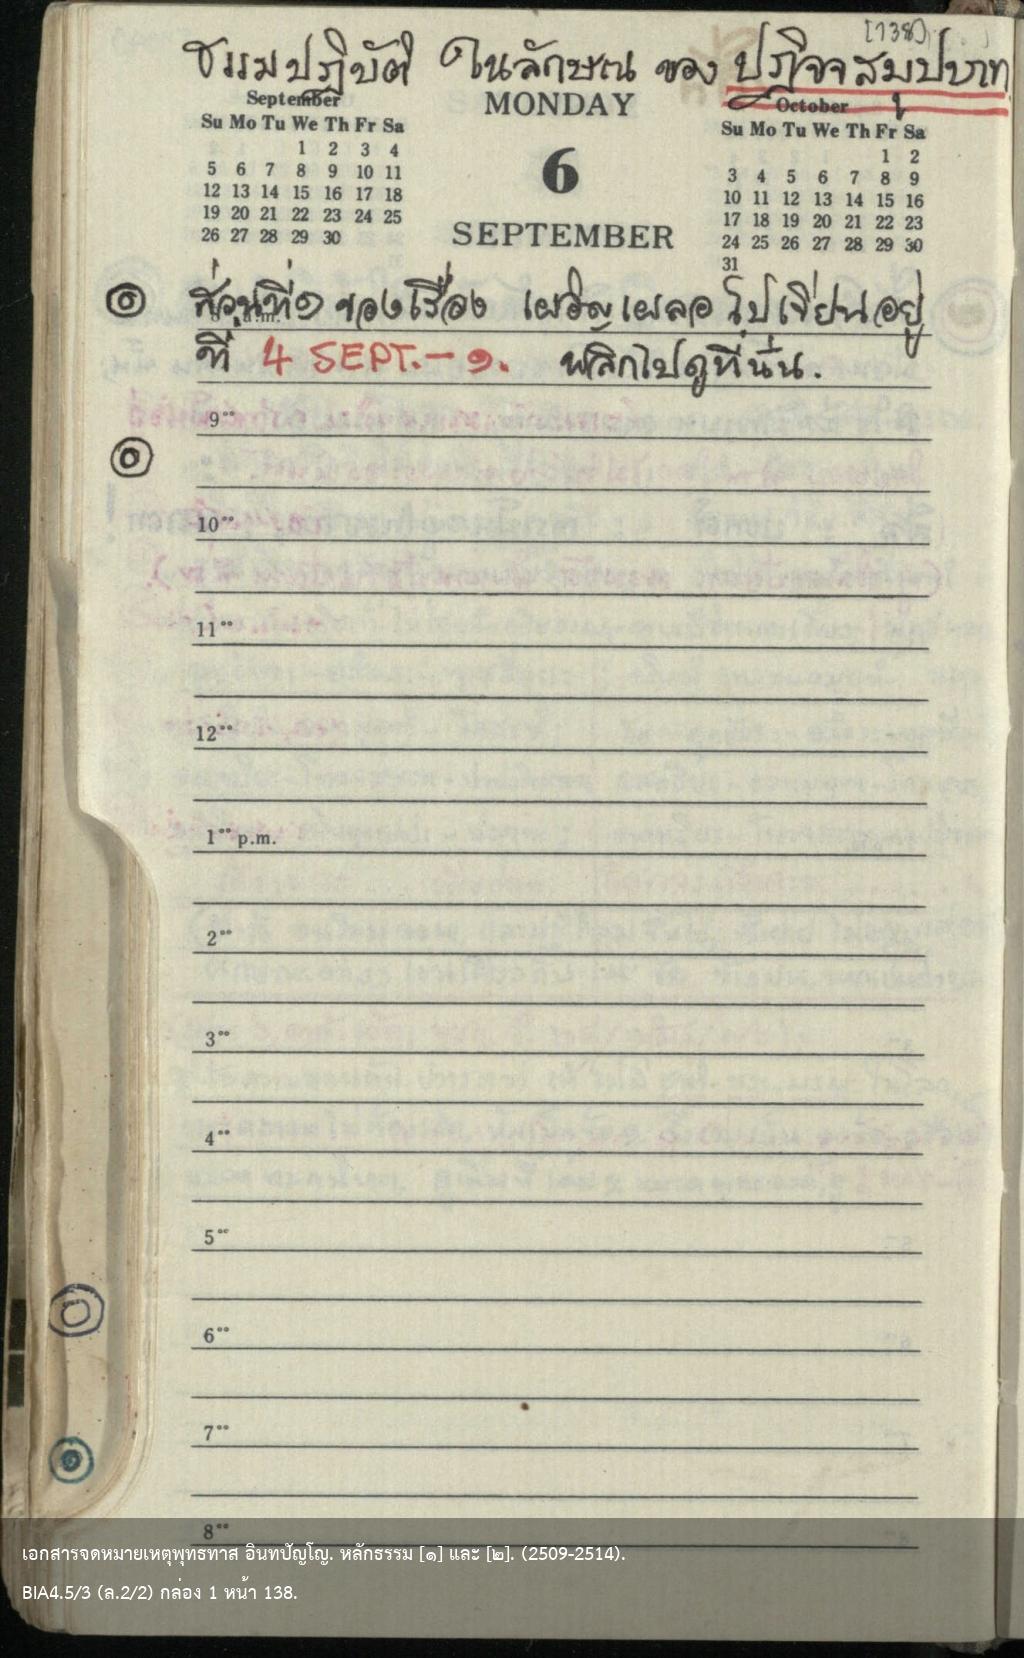 [138]
ธรรมปฏิบัติ ในลักษณ ของ ปฏิจจสมุปบาท
September
Su Mo Tu We Th Fr Sa
1 2 3 4
5 6 7 8 9 10 11
12 13 14 15 16 17 18
19 20 21 22 23 24 25
26 27 28 29 30
MONDAY
6
SEPTEMBER
October
Su Mo Tu We Th Fr Sa
1 2
3 4 5 6 7 8 9
10 11 12 13 14 15 16
17 18 19 20 21 22 23
24 25 26 27 28 29 30
31
ส่วนที่๑ ของเรื่อง เผอิญเผลอ ไปเขียนอยู่
ที่ 4 SEPT.-๑. พลิกไปดูที่นั่น.
9°°
10°°
11°°
12°°
1°° p.m.
2°°
3°°
4°°
5°°
6°°
7°°
8°°
เอกสารจดหมายเหตุพุทธทาส อินทปัญโญ. หลักธรรม [๑] และ [๒]. (2509-2514).
BIA4.5/3 (ล.2/2) กล่อง 1 หน้า 138.